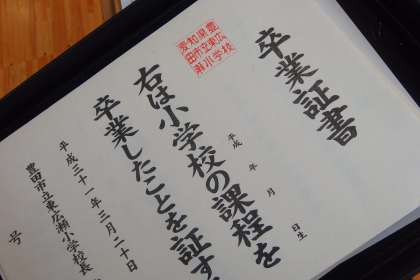 卒業証書
愛知県豊
田市立東広
瀬小学校
平成 年 月 日生
右は小学校の課程を
卒業したことを証す
平成三十一年三月二十日
豊田市立東広瀬小学校長
号